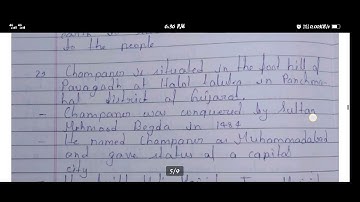 6:30 PM
to the people
29 Champaner is situated in the foot hill of
Pavagadh at Halol taluka in Panchma-
hal district of Gujarat
- Champaner was conquered by Sultan
Mehmood Begda in 1484
- He named Champaner as Muhammadabad
and gave status of a capital
city
5/9